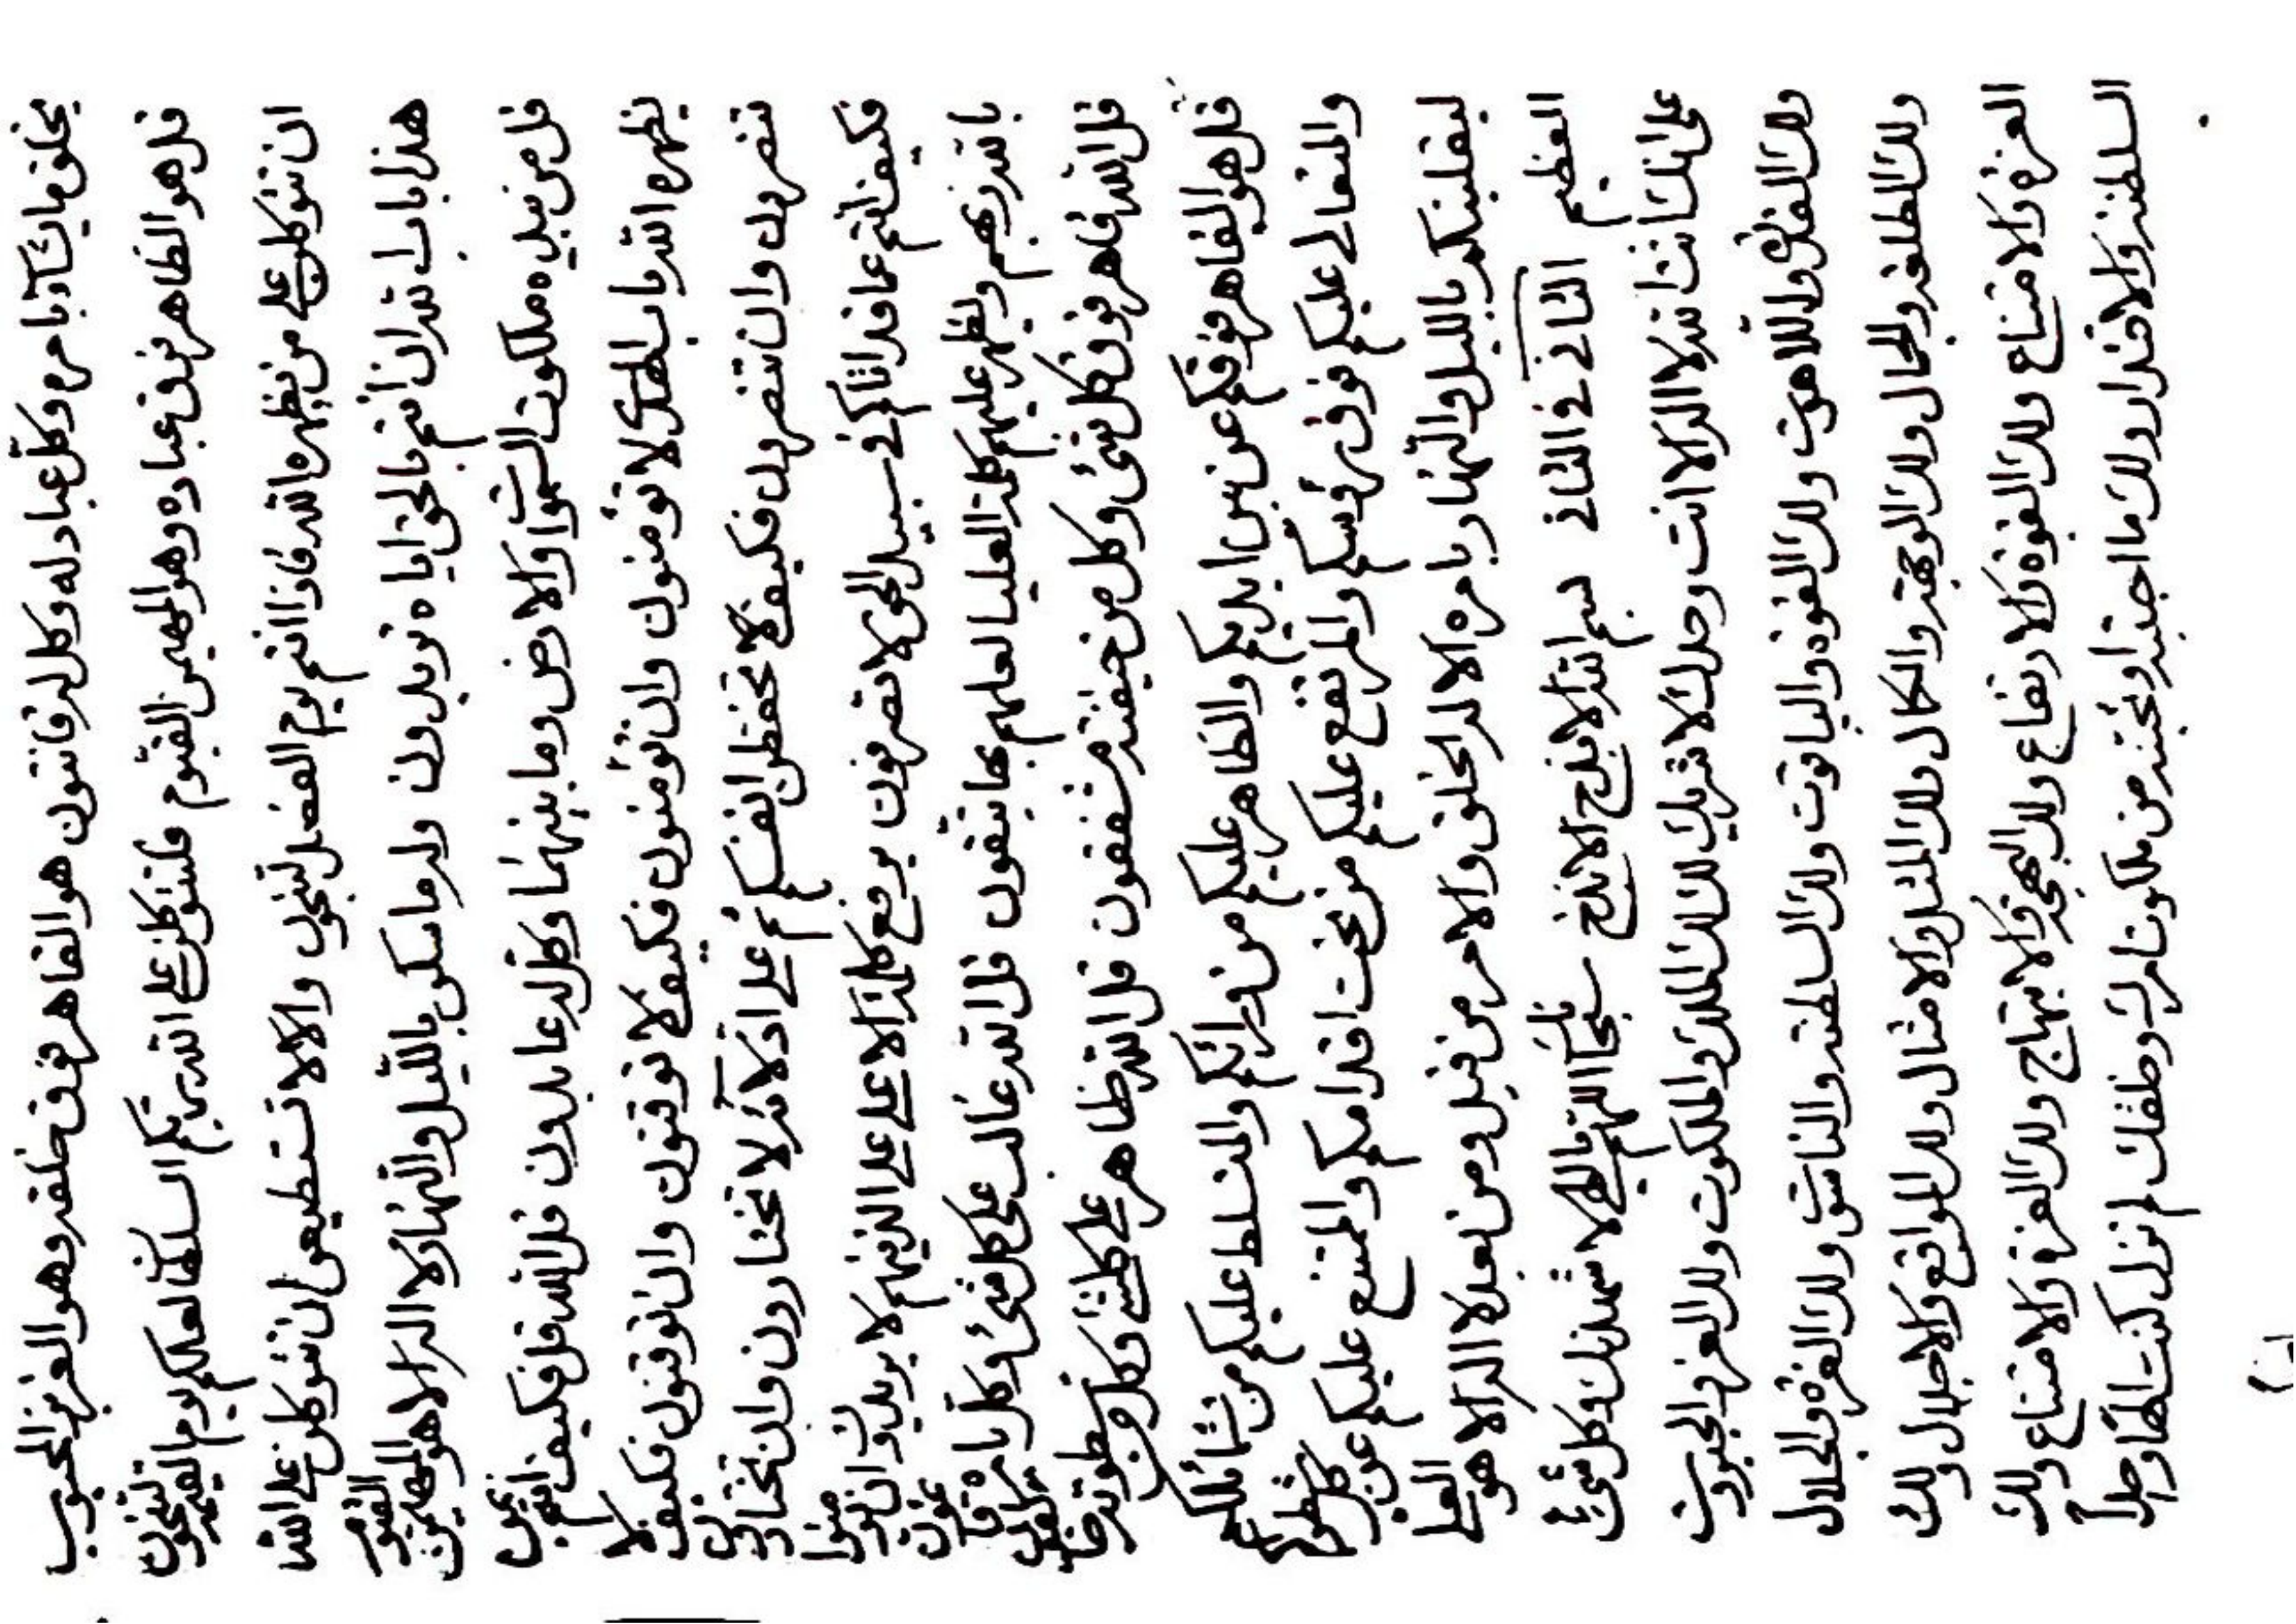 يخلق ما يشآء بامره وكل عباد له وكل له قانتون هو القاهر فوق خلقه وهو العزيز المحبوب
قل هو الظاهر فوق عباده وهو المهيمن القيوم فلتتوكلن على الله ربكم السلطان لعلكم يوم القيمة لتنجون
ان تتوكلن على من يظهره الله فاذا انتم يوم الفصل لتنجون والا لا تستطيعون ان تتوكلن على الله
هذا باب الله ان انتم بالحق اياه تريدون وله ما سكن بالليل والنهار لا اله الا هو المهيمن القيوم
قل من بيده ملكوت السموات والارض وما بينهما وكل له عابدون قل الله قل فكيف انتم بمن
يظهره الله باب الهدى لا تؤمنون وان تؤمنون فكيف لا توقنون وان توقنون فكيف لا
تنصرون وان تنصرون فكيف لا تحفظن انفسكم على ادلآء الله لا تختارون وان تختارون
فكيف انتم عما قد اتاكم في سبيل الحق لا تصرفون يرفع كلمة الاعلى على الذينهم لا يريدون ان يؤمنوا
بالله ربهم ويظهر عليهم كلمة العليا لعلهم بها يتقون قل الله غالب على كل شئ وكل بامره
قل الله قاهر فوق كل شئ وكل من خيفته مشفقون قل الله ظاهر على كلشئ وكل من سطوته
قل هو القاهر فوقكم عن بين ايديكم والظاهر عليكم من ورائكم والمتسلط عليكم من شمائلكم
والمتعالي عليكم فوق رؤسكم والمرتفع عليكم من تحت اقدامكم والممتنع عليكم عن كل
ليقلبنكم بالليل والنهار بامره الا له الخلق والامر من قبل ومن بعد لا اله الا هو العلي
العظيم الثاني في الثاني بسم الله الابذخ الابذخ سبحانك اللهم يا الهي لاشهدنك وكل شئ
على انك انت الله لا اله الا انت وحدك لا شريك لك لك الملك والملكوت ولك العز والجبروت
ولك القدرة واللاهوت ولك القوة والياقوت ولك السلطنة والناسوت ولك العزة والجلال
ولك الطلعة والجمال ولك الوجهة والكمال ولك المثل والامثال ولك المواقع والاجلال ولك
العزة والامتناع ولك القوة والارتفاع ولك البهجة والابتهاج ولك العزة والامتناع ولك
السلطنة والاقتدار ولك ما احببته او تحبنه من ملكوت امرك وخلقك لم تزل كنت الها واحدا